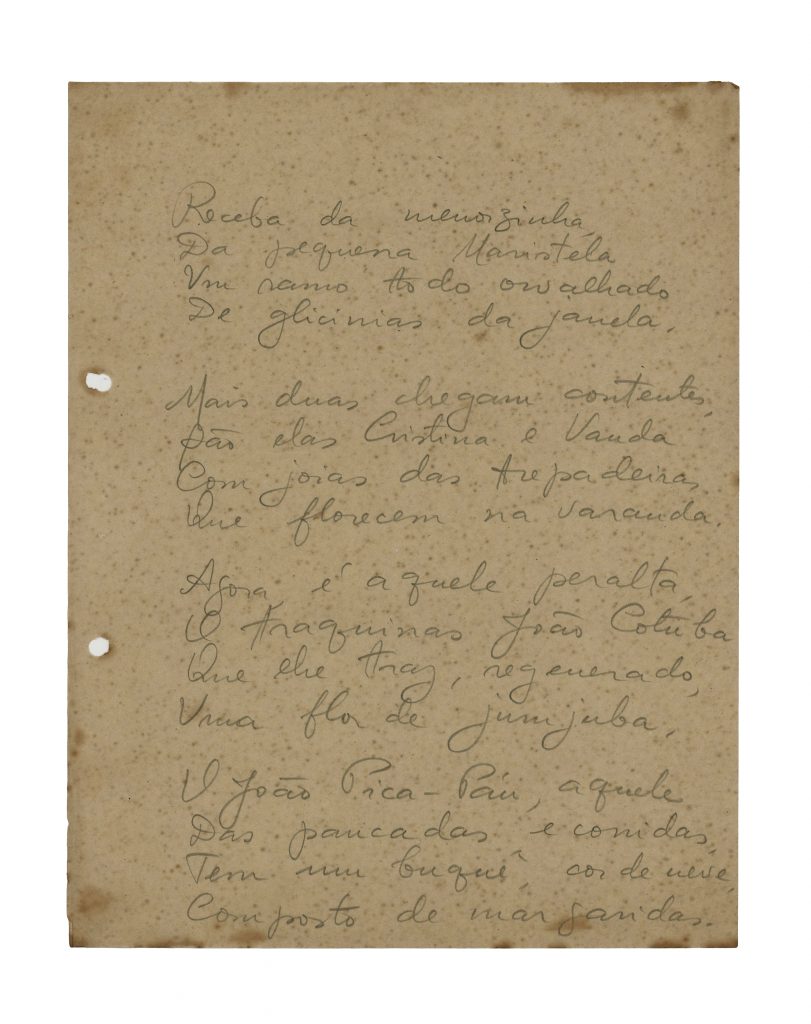 Receba da menorzinha,
Da pequena Maristela
Um ramo todo orvalhado
De glicinias da janela.
Mais duas chegam contentes,
São elas Cristina e Vanda
Com joias das trepadeiras
Que florecem na varanda.
Agora, é aquele peralta,
O traquinas João Cotuba
Que lhe traz, regenerado,
Uma flor de jumjuba.
O João Pica-Páu, aquele
Das pancadas e comidas,
Tem um buquê, cor de neve,
Composto de margaridas.